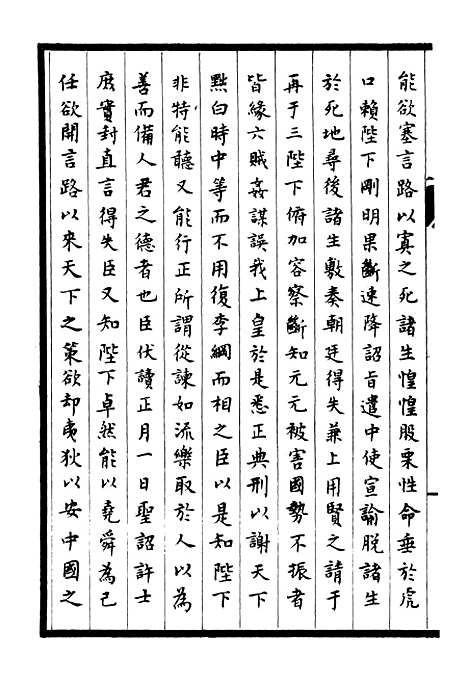 能欲塞言路以寘之死諸生惶惶股栗性命垂於虎
口賴陛下剛明果斷速降詔旨遣中使宣諭脫諸生
於死地尋後諸生敷奏朝廷得失兼上用賢之請于
再于三陛下俯加容察斷知元元被害國勢不振者
皆緣六賊姦謀誤我上皇於是悉正典刑以謝天下
㸃白時中等而不用復李綱而相之臣以是知陛下
非特能聽又能行正所謂從諫如流樂取於人以為
善而備人君之德者也臣伏讀正月一日聖詔許士
庶實封直言得失臣又知陛下卓然能以堯舜為己
任欲開言路以来天下之策欲却夷狄以安中國之